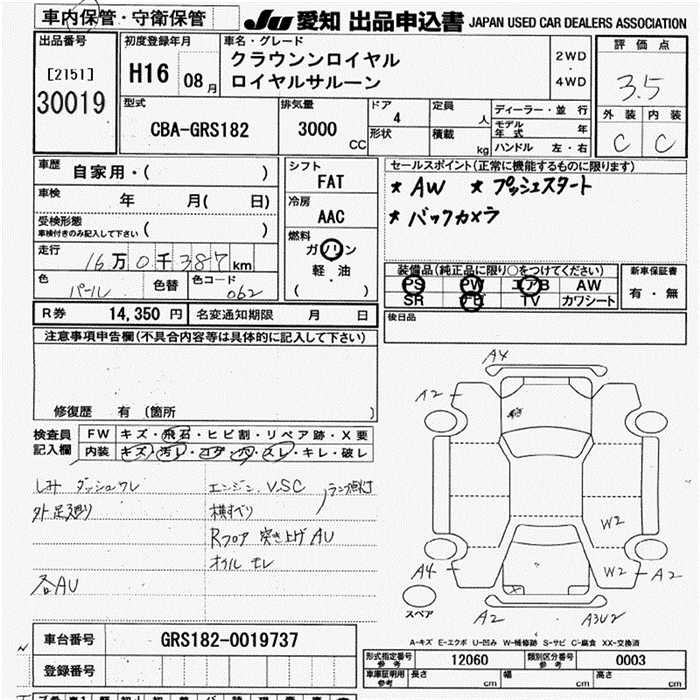 車内保管・守衛保管
JU 愛知 出品申込書 JAPAN USED CAR DEALERS ASSOCIATION
出品番号
[2151]
30019
初度登録年月
H16 08 月
車名・グレード
クラウンンロイヤル
ロイヤルサルーン
2WD
・
4WD
評価点
3.5
外装 内装
C C
型式
CBA-GRS182
排気量
3000
CC
ドア
4
形状
定員
人
積載
kg
ディーラー・並行
モデル年式 年
ハンドル 左・右
車歴 自家用・( )
車検 年 月( 日)
受検形態
車検付きのみ記入して下さい ( )
走行
16万0千387km
色
パール
色替
色コード
062
シフト
FAT
冷房
AAC
燃料
ガソリン
軽・油
( )
セールスポイント(正常に機能するものに限ります)
★ AW ★ プッシュスタート
★ バックカメラ
装備品(純正品に限り○をつけてください)
PS PW エアB AW
SR ナビ TV カワシート
新車保証書
有・無
後日品
R券 14,350 円
名変通知期限 月 日
注意事項申告欄(不具合内容等は具体的に記入して下さい)
修復歴 有 (箇所 )
検査員記入欄
FW キズ・飛石・ヒビ割・リペア跡・X要
内装 キズ・汚レ・コゲ・穴・スレ・キレ・破レ
シミ ダッシュワレ
外足廻り
各AU
エンジン、VSC ランプ点灯
横すべり
Rフロア 突き上げ AU
オイルモレ
A4
A2
W2
W2
A2
A4
A2
A3U2
スペア
A-キズ E-エクボ U-凹み W-補修跡 S-サビ C-腐食 XX-交換済
車台番号 GRS182-0019737
登録番号
形式指定番号
参考
12060
類別区分番号
参考
0003
車庫証明用
参考
長さ cm
幅 cm
高さ cm